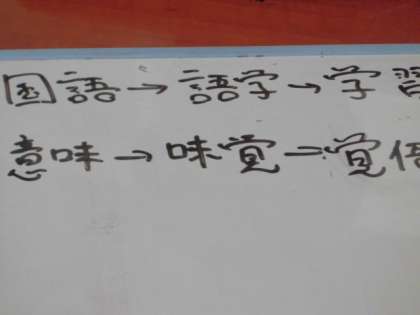 国語→語学→学習
意味→味覚→覚悟